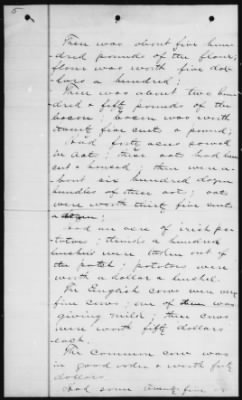 5
There was about five hun-
dred pounds of the flour,
flour was worth five dol-
lars a hundred;
There was about two hun-
dred & fifty pounds of the
bacon; bacon was worth
twenty five cents a pound;
had forty acres sowed
in oat; these oats had
cut & housed; there were a-
bout six hundred dozen
bundles of these oat; oats
were worth thirty five cents
a dozen;
had an acre of irish po-
tatoes; a hundred
bushels were taken out of
the patch; potatoes were
worth a dollar a bushel.
The English cows were very
fine cows; one of them was
giving milk; these cows
were worth fifty dollars
each.
The common cow was
in good order & worth fifty
dollars.
had some twenty five